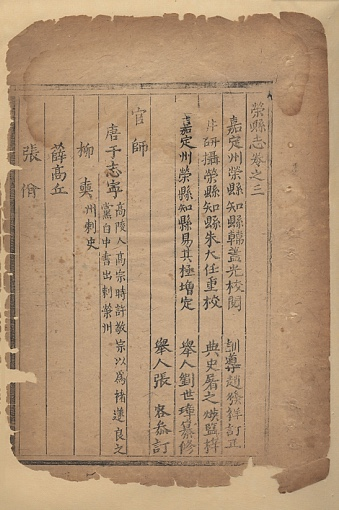 榮縣志卷之三
嘉定州榮縣知縣韓蓋光校閱 訓導趙 祥訂正
井研攝榮縣知縣朱大任重校 典史屠之 監梓
嘉定州榮縣知縣易其極增定 舉人劉世璋纂修
舉人張 容叅訂
官師
唐于志寧 高陵人髙宗時許敬宗以爲褚遂良之
黨白中書出刺榮州
柳奭 州刺史
薛高丘
張偗